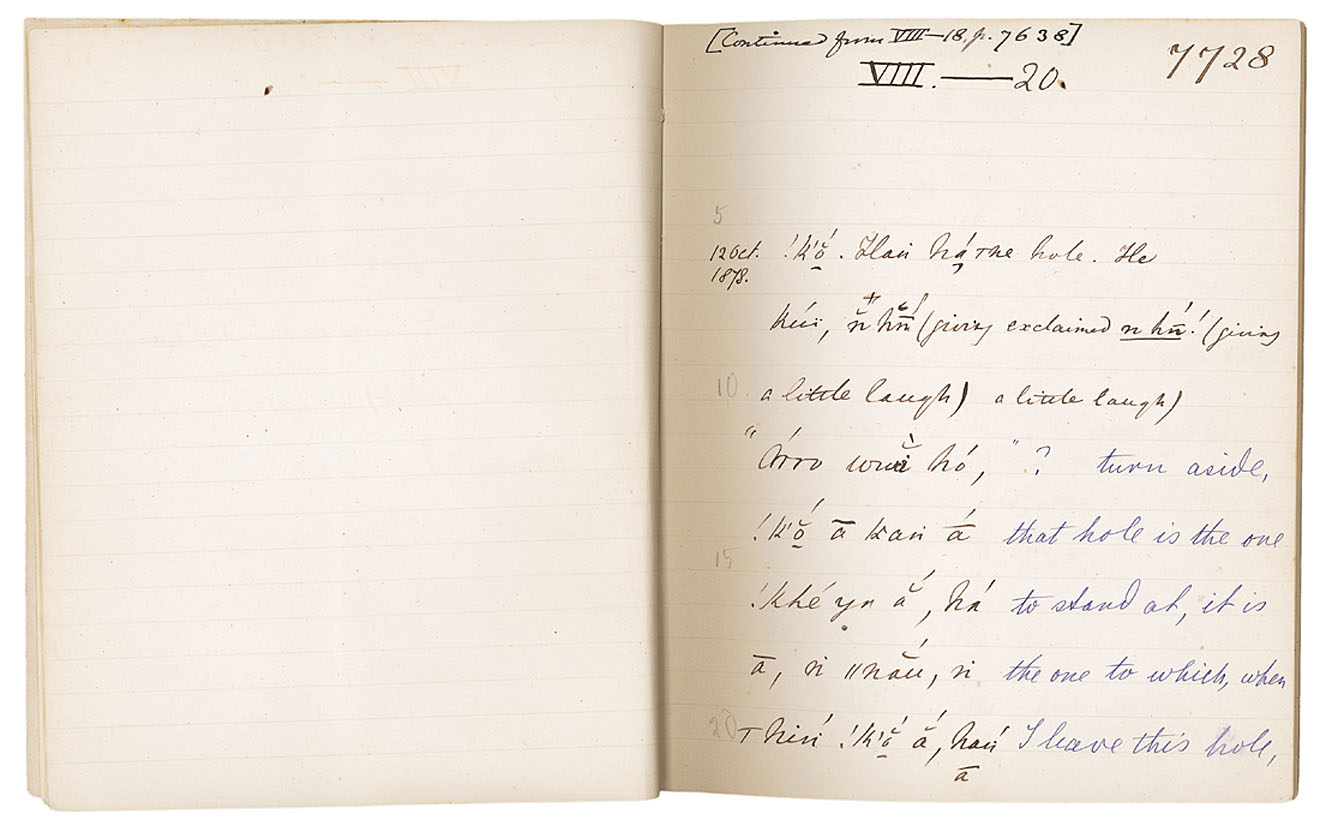 [Continued from VIII—18, p. 7638]
7728
VIII. — 20.
5
12 Oct. !k'ŏ́. Haṅ há the hole. He
1878.
kúï, ň hń̄ (giving exclaimed n hń̄! (giving
10 a little laugh) a little laugh)
"Árro wwaĭ hó," ? turn aside,
!k'ŏ́ ā kaṅ ā́ that hole is the one
15
!khé yn ắ, há to stand at, it is
ā, ṅ ǁnắu, ṅ the one to which, when
20 ⊤hiṅ́ !k'ŏ́ ắ, haṅ́ I leave this hole,
ā